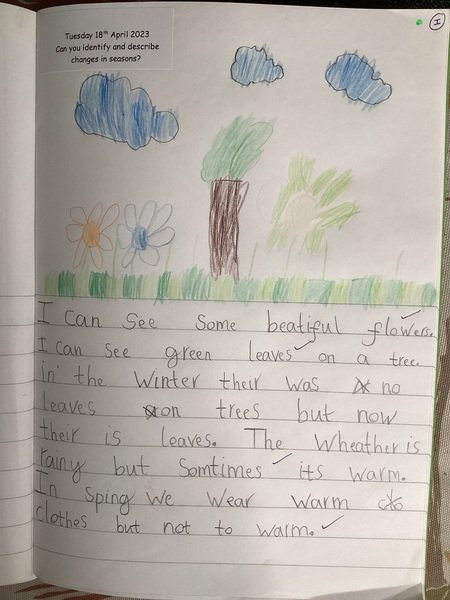 Tuesday 18th April 2023
Can you identify and describe
changes in seasons?
I
I can see some beatiful flowers.
I can see green leaves on a tree.
in the winter their was no
leaves on trees but now
their is leaves. The Wheather is
rainy but Somtimes its warm.
In Sping we wear warm
clothes but not to warm.